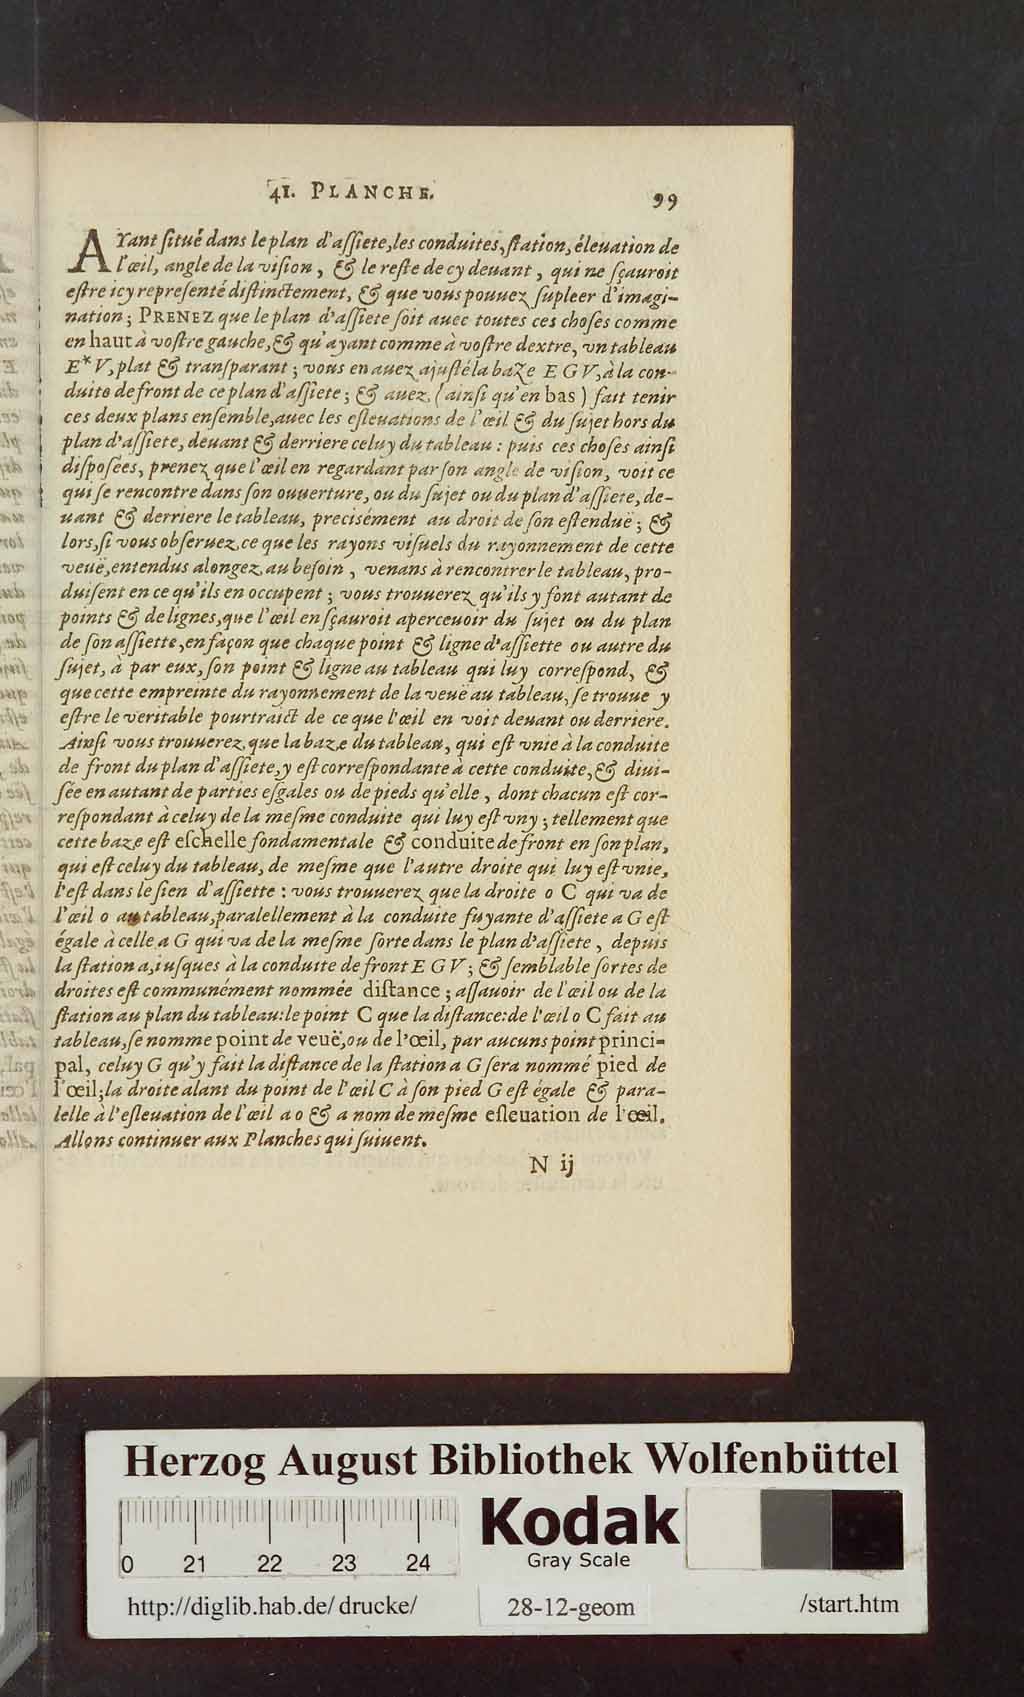 41. PLANCHE.
99
AYant ſitué dans le plan d'aſſiete, les conduites, ſtation, éleuation de
l'œil, angle de la viſion, & le reſte de cy deuant, qui ne ſçauroit
eſtre icy repreſenté diſtinctement, & que vous pouuez ſupleer d'imagi-
nation; PRENEZ que le plan d'aſſiete ſoit auec toutes ces choſes comme
en haut à voſtre gauche, & qu'ayant comme à voſtre dextre, vn tableau
E*V, plat & tranſparant; vous en auez ajuſté la baze E G V, à la con-
duite de front de ce plan d'aſſiete; & auez, (ainſi qu'en bas) fait tenir
ces deux plans enſemble, auec les eſleuations de l'œil & du ſujet hors du
plan d'aſſiete, deuant & derriere celuy du tableau: puis ces choſes ainſi
diſpoſées, prenez que l'œil en regardant par ſon angle de viſion, voit ce
qui ſe rencontre dans ſon ouuerture, ou du ſujet ou du plan d'aſſiete, de-
uant & derriere le tableau, preciſément au droit de ſon eſtenduë; &
lors, ſi vous obſeruez, ce que les rayons viſuels du rayonnement de cette
veuë, entendus alongez, au beſoin, venans à rencontrer le tableau, pro-
duiſent en ce qu'ils en occupent; vous trouuerez qu'ils y font autant de
points & de lignes, que l'œil en ſçauroit aperceuoir du ſujet ou du plan
de ſon aſſiette, en façon que chaque point & ligne d'aſſiette ou autre du
ſujet, à par eux, ſon point & ligne au tableau qui luy correſpond, &
que cette empreinte du rayonnement de la veuë au tableau, ſe trouue y
eſtre le veritable pourtraict de ce que l'œil en voit deuant ou derriere.
Ainſi vous trouuerez, que la baze du tableau, qui eſt vnie à la conduite
de front du plan d'aſſiete, y eſt correſpondante à cette conduite, & diui-
ſée en autant de parties eſgales ou de pieds qu'elle, dont chacun eſt cor-
reſpondant à celuy de la meſme conduite qui luy eſt vny; tellement que
cette baze eſt eſchelle fondamentale & conduite de front en ſon plan,
qui eſt celuy du tableau, de meſme que l'autre droite qui luy eſt vnie,
l'eſt dans le ſien d'aſſiette: vous trouuerez que la droite o C qui va de
l'œil o au tableau, paralellement à la conduite fuyante d'aſſiete a G eſt
égale à celle a G qui va de la meſme ſorte dans le plan d'aſſiete, depuis
la ſtation a, iuſques à la conduite de front E G V; & ſemblable ſortes de
droites eſt communément nommée diſtance; aſſauoir de l'œil ou de la
ſtation au plan du tableau: le point C que la diſtance: de l'œil o C fait au
tableau, ſe nomme point de veuë, ou de l'œil, par aucuns point princi-
pal, celuy G qu'y fait la diſtance de la ſtation a G ſera nommé pied de
l'œil; la droite alant du point de l'œil C à ſon pied G eſt égale & para-
lelle à l'eſleuation de l'œil a o & a nom de meſme eſleuation de l'œil.
Allons continuer aux Planches qui ſuiuent.
N ij
Herzog August Bibliothek Wolfenbüttel
0 21 22 23 24
Kodak
Gray Scale
http://diglib.hab.de/drucke/
28-12-geom
/start.htm